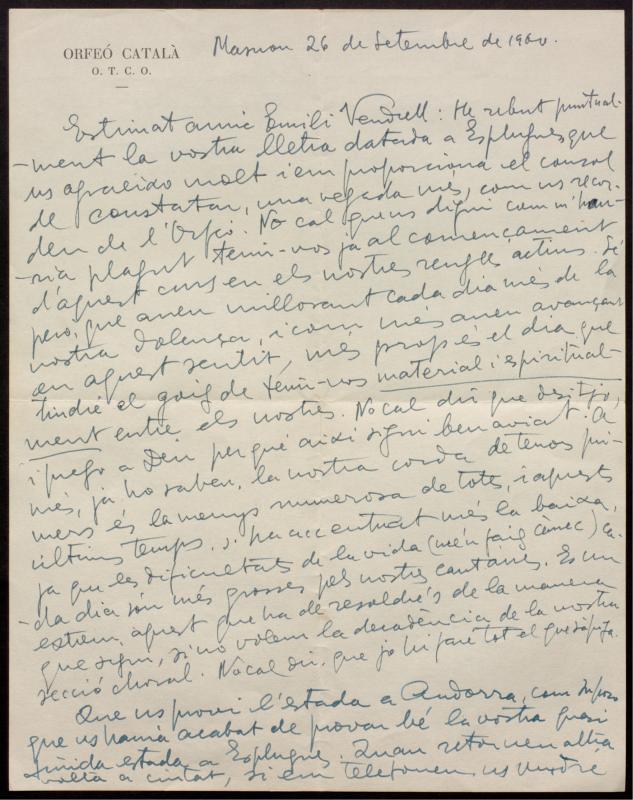 ORFEÓ CATALÀ
O. T. C. O.
Masnou 26 de Setembre de 1960.
Estimat amic Emili Vendrell: He rebut puntual-
-ment la vostra lletra datada a Esplugues que
us agraeixo molt i em proporciona el consol
de constatar, una vegada més, com us recor-
den de l'Orfeó. No cal que us digui com m'hau-
-ria plagut tenir-vos ja al començament
d'aquest curs en els nostres rengles actius. Sé
però, que aneu millorant cada dia més de la
vostra dolença, i com més aneu avançant
en aquest sentit, més prop és el dia que
tindré el goig de tenir-vos material i espiritual-
ment entre els nostres. No cal dir que desitjo,
i prego a Déu perquè així sigui ben aviat. A
més, ja ho sabeu, la nostra corda de tenors pri-
mers és la menys numerosa de totes, i aquests
últims temps, s'ha accentuat més la baixa,
ja que les dificultats de la vida (me'n faig càrrec) ca-
-da dia són més grosses pels nostres cantaires. Es un
extrem aquest que ha de resoldre's de la manera
que sigui, si no volem la decadència de la nostra
secció choral. No cal dir, que jo hi faré tot el que sàpiga.
Que us provi l'estada a Andorra, com suposo
que us haurà acabat de provar bé la vostra quasi
estada a Esplugues. Quan retorneu altra
volta a ciutat, si em telefoneu us vindré